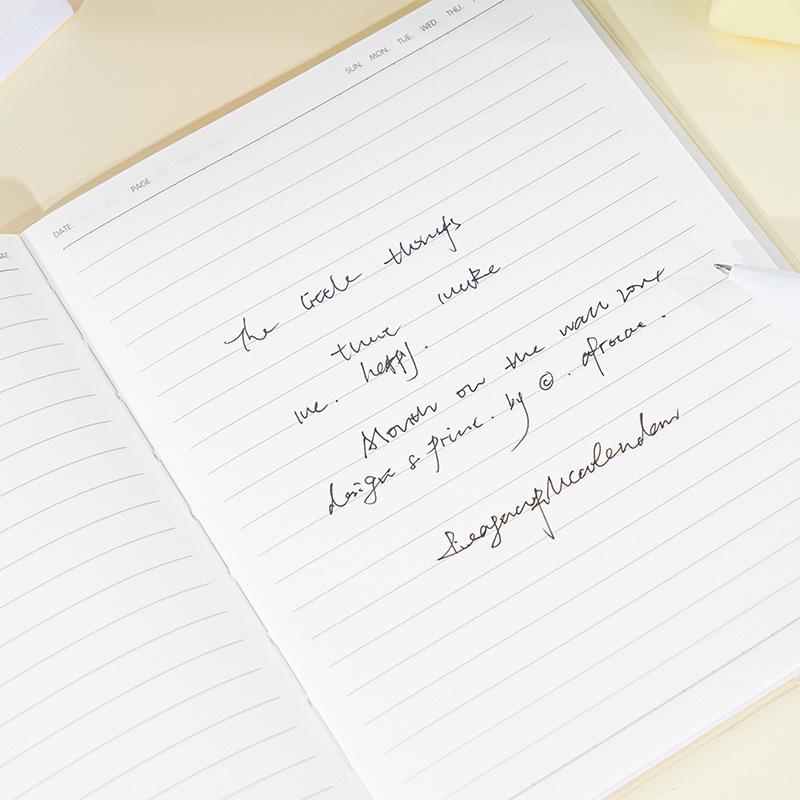 SAT.
DATE. PAGE. SUN. MON. TUE. WED. THU.
The little things
that make
me. happy.
Month on the wall
design & print. by ©.